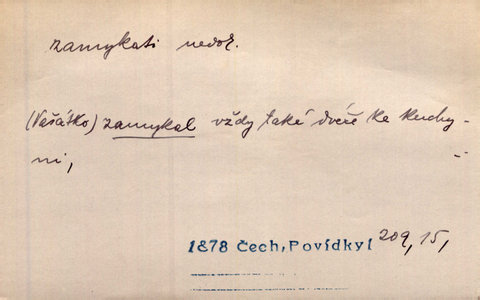 zamykati nedok.
(Vašátko) zamykal vždy také dveře ke kuchy-
ni,
1878 Čech, Povídky I 209, 15,